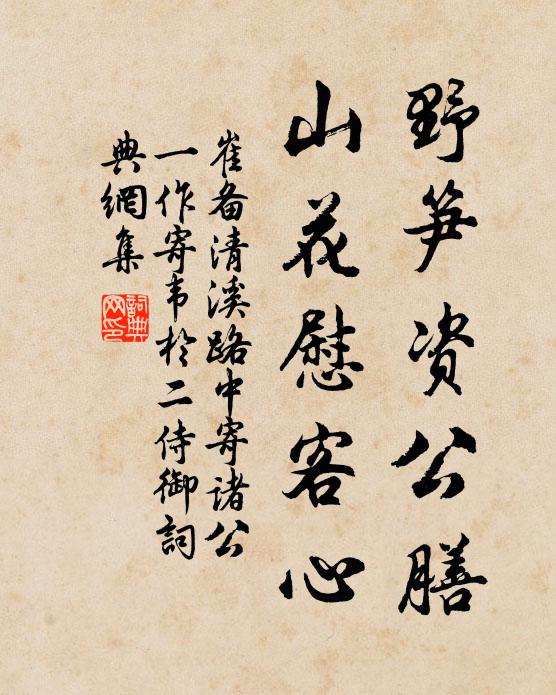 野笋资公膳
山花慰客心
崔备清溪路中寄诸公
一作寄韦於二侍御词
典網集
詞典
网印